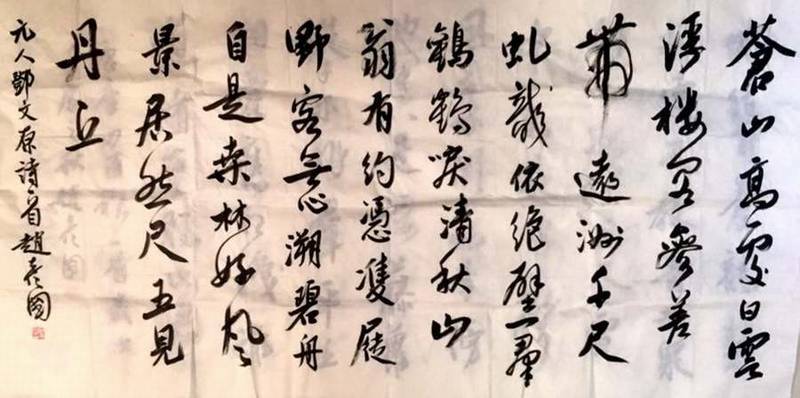 蒼山高處白雲
浮樓閣參差
帶遠洲千尺
虬龍依絕壁一羣
鸛鶴唳清秋山
翁有約憑雙屐
野客無心溯碧舟
自是桑林好風
景居然尺五見
丹丘
元人鄧文原詩一首趙彥國